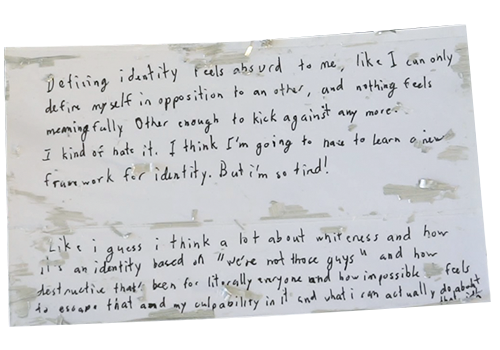 Defining identity feels absurd to me, like I can only
define myself in opposition to an other, and nothing feels
meaningfully Other enough to kick against any more.
I kind of hate it. I think I'm going to have to learn a new
framework for identity. But i'm so tired!
Like i guess i think a lot about whiteness and how
it's an identity based on "we're not those guys" and how
destructive that's been for literally everyone and how impossible it feels
to escape that and my culpability in it and what i can actually do about
that